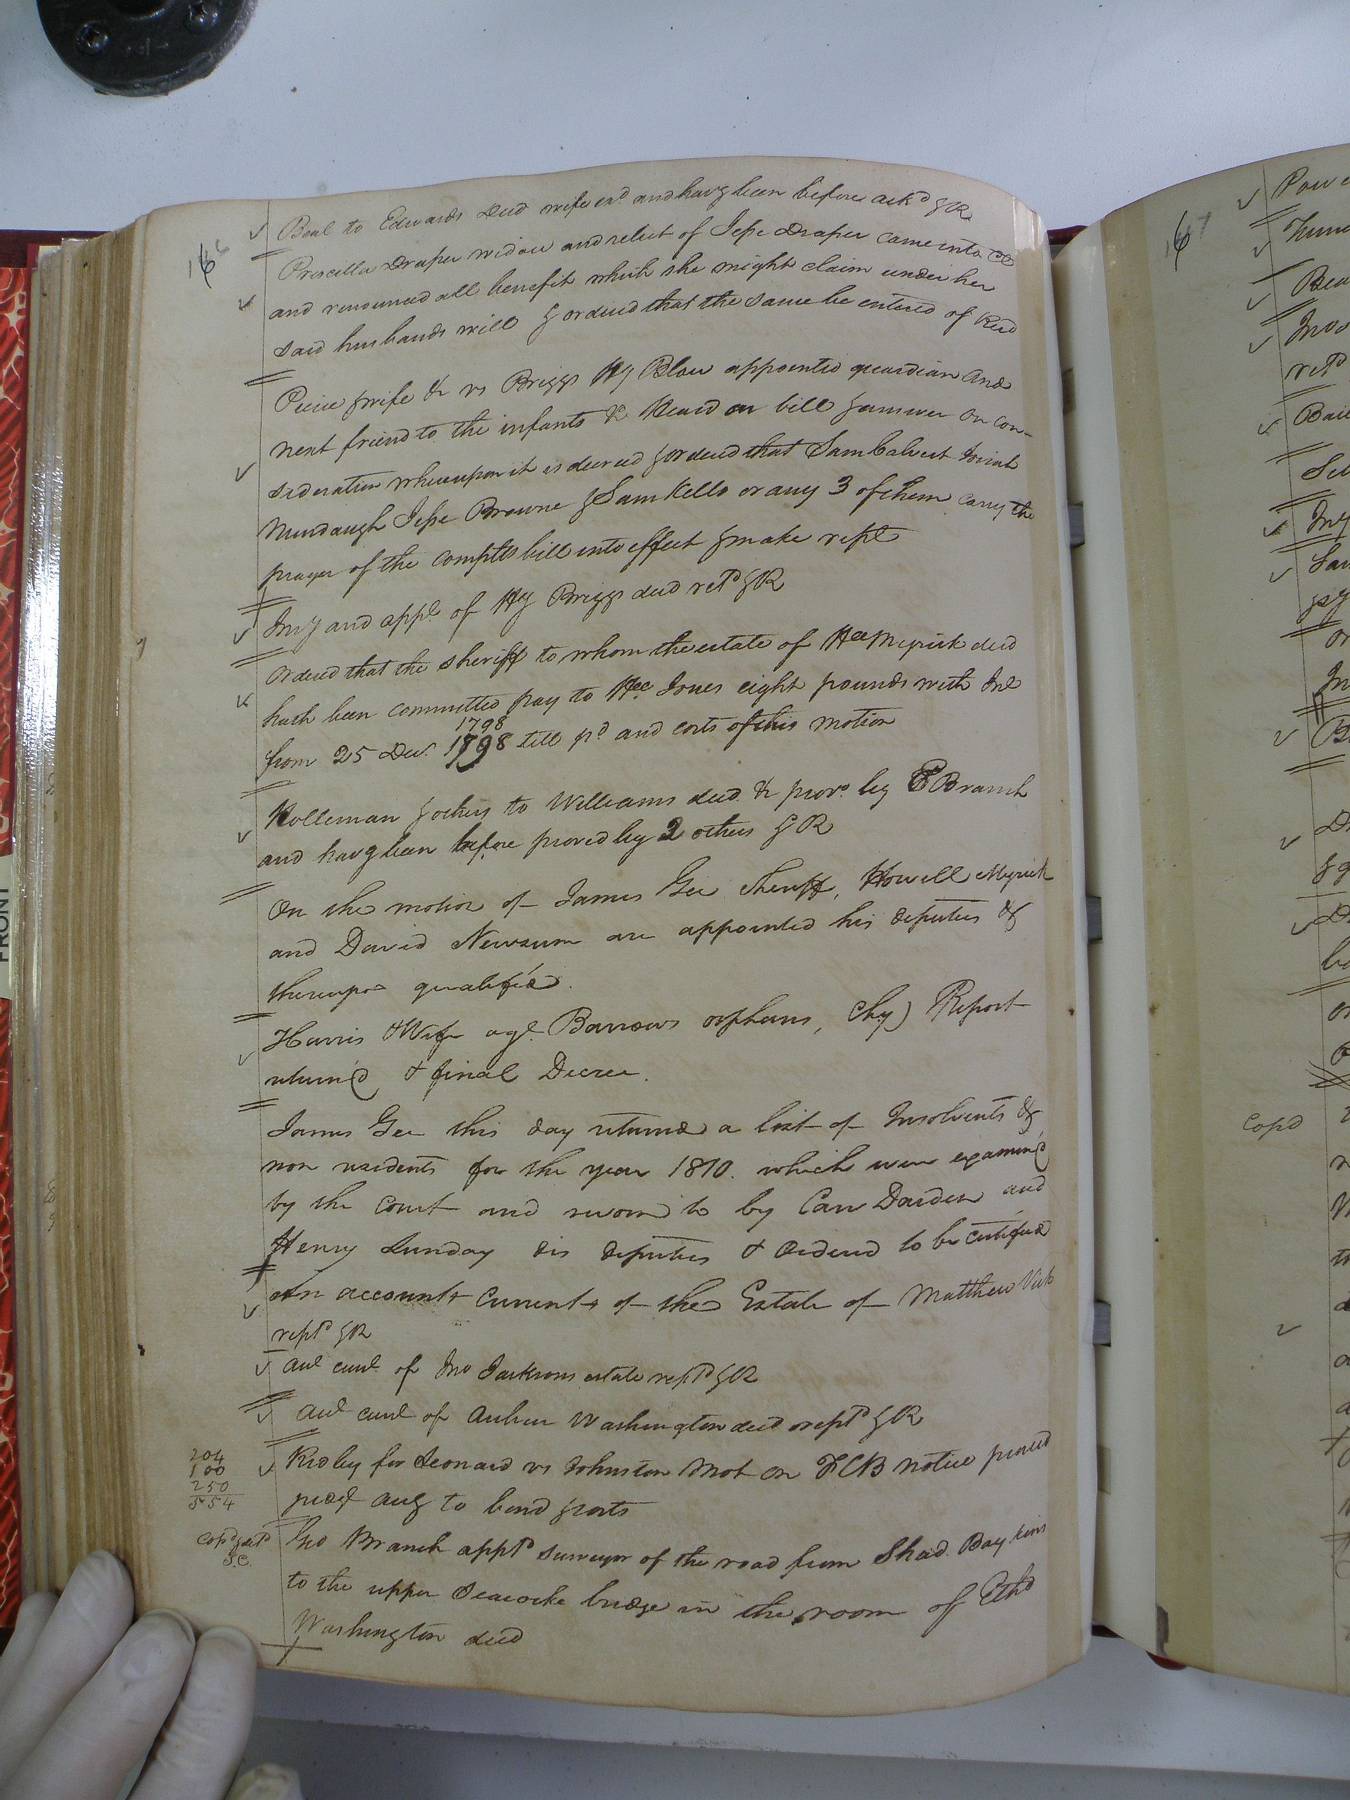 166
Beal to Edwards deed wife exd and havg been before ackd & R
Priscilla Draper widow and relict of Jesse Draper came into Ct
and renounced all benefit which she might claim under her
said husbands will & ordered that the same be entered of Recd
Peirce & wife &c vs Briggs Hy Blow appointed guardian and
next friend to the infants &c Heard on bill & answer on con-
sideration whereupon it is decreed & ordered that Sam Calvert Josiah
Murdaugh Jesse Browne & Sam Kello or any 3 of them carry the
prayer of the complts bill into effect & make rept
Invy and appt of Hy Briggs decd retd & R
Ordered that the sheriff to whom the estate of Hee Myrick decd
hath been committed pay to Hee Jones eight pounds with Int
1798
from 25 Decr 1798 till pd and costs of this motion
Holleman & others to Williams deed &c provd by E Branch
and havg been before proved by 2 others & R
On the motion of James Gee Sheriff, Howell Myrick
and David Newsum are appointed his deputies &
thereupon qualified.
Harris & Wife agt. Barrows orphans, Chy) Report
returned & final Decree.
James Gee this day returned a list of Insolvents &
non residents for the year 1810. which were examined
by the Court and sworn to by Carr Darden and
Henry Lunday his deputies & Ordered to be certified
An account current of the Estate of Matthew Vick
rept & R
Act curt of Jno Jacksons estate reptd & R
Act curt of Arthur Washington decd reptd & R
204
100
250
554
Ridley for Leonard vs Johnston Mot on FCB notice proved
judgt Aug to bond & costs
Copd &
S.C.
Geo Branch apptd surveyor of the road from Shad. Boykins
to the upper Seacocke bridge in the room of Ethd
Washington decd
167
Copd
FRONT